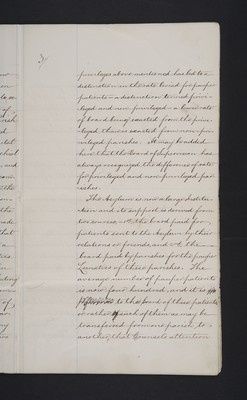 3/
privileges above mentioned has led to a
distinction in the rate levied for pauper
patients – a distinction termed privi-
leged and non privileged – a lower rate
of board being exacted from the privi-
leged than is exacted from non privi-
leged parishes. It may be added
here that the Board of Supervision has
always recognized the difference of rate
for privileged and non privileged par-
ishes.
The Asylum is now a large institu-
tion and its support is derived from
two sources viz 1st the board paid for
patients sent to the Asylum by their
relations or friends and 2d the
board paid by parishes for the pauper
Lunatics of these parishes. The
average number of pauper patients
is now four hundred, and it is
to the board of these patients
or rather of such of them as may be
transferred from one parish to
another, that Counsel's attention